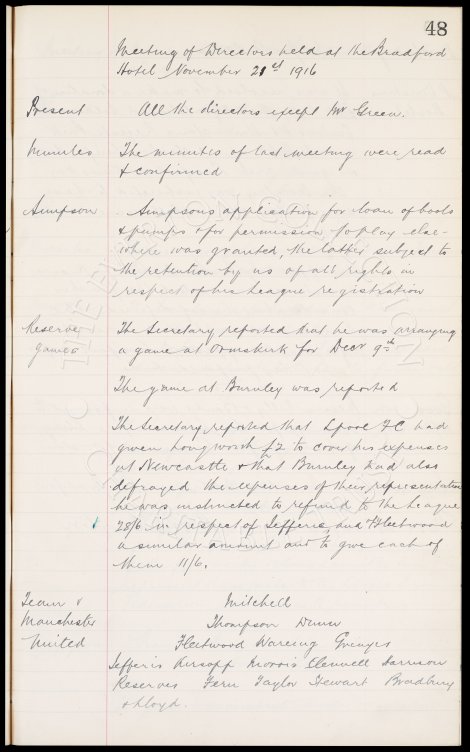 48
Meeting of Directors held at the Bradford
Hotel November 21st 1916
Present All the directors except Mr Green.
Minutes The minutes of last meeting were read
& confirmed
Simpson Simpsons application for loan of boots
& pumps & for permission to play else-
where was granted, the latter subject to
the retention by us of all rights in
respect of his League registration
Reserve The Secretary reported that he was arranging
games a game at Ormskirk for Decr 9th
The game at Burnley was reported
The Secretary reported that Lpool FC had
given Longworth £2 to cover his expenses
at Newcastle & that Burnley had also
defrayed the expenses of their representative
he was instructed to refund to the League
28/6 in respect of Jefferis and Fleetwood
a similar amount and to give each of
them 11/6.
Team v Mitchell
Manchester Thompson Dunn
United Fleetwood Wareing Grenyer
Jefferis Kirsopp Morris Clennell Harrison
Reserves Fern Taylor Stewart Bradbury
& Lloyd.